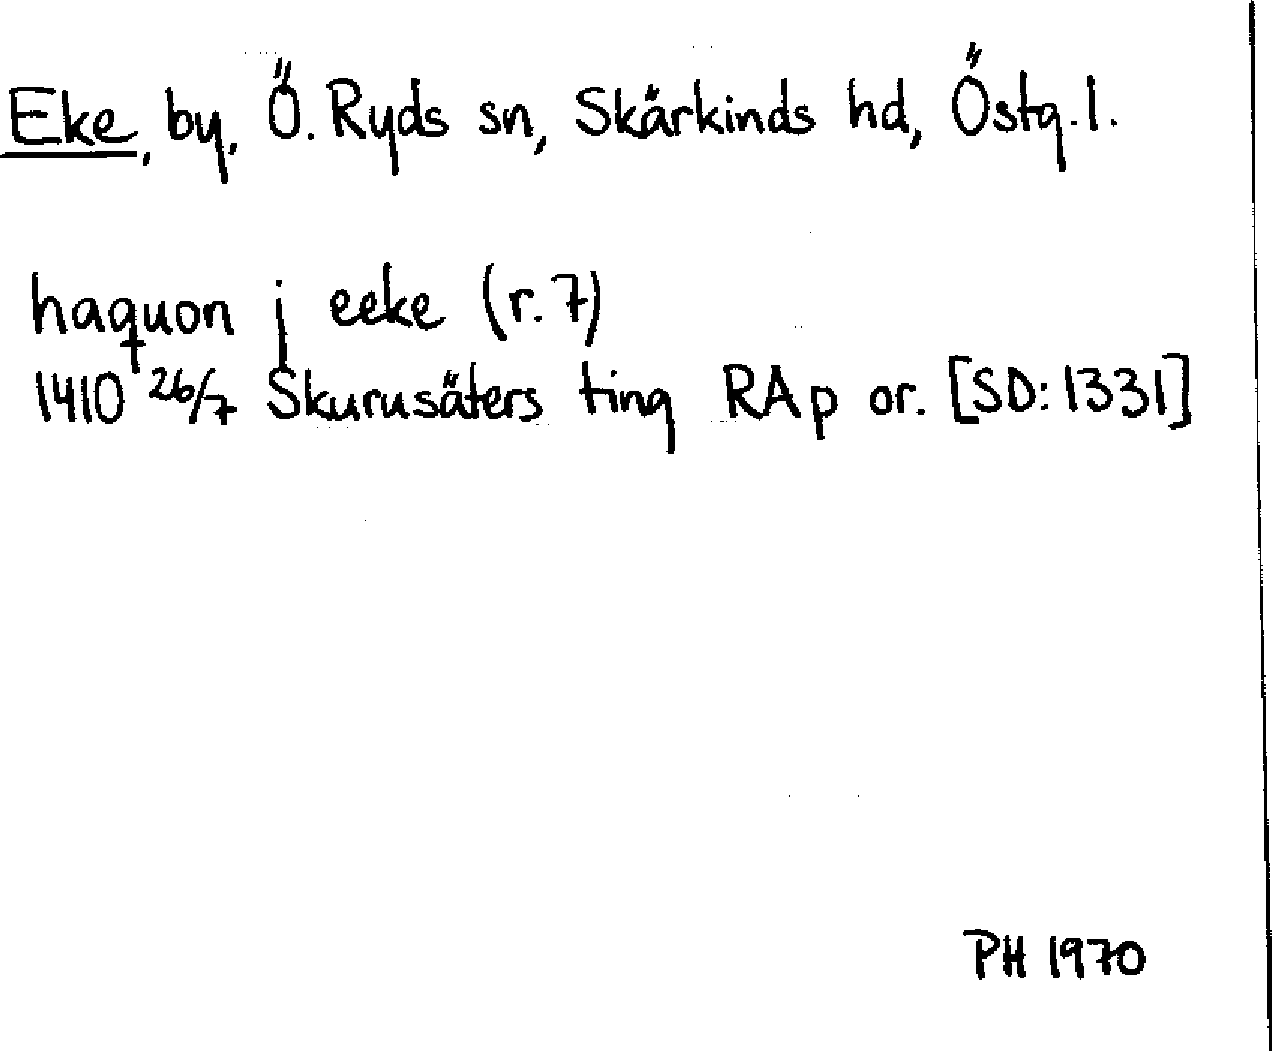 Eke, by, Ö. Ryds sn, Skärkinds hd, Östg. l.
haquon j eeke (r. 7)
1410 26/7 Skurusäters ting RAp or. [SD: 1331]
PH 1970